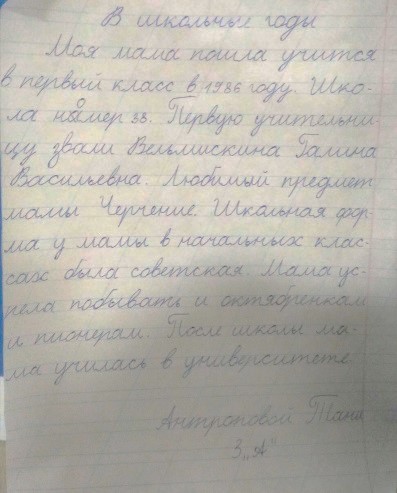 В школьные годы
Моя мама пошла учится
в первый класс в 1986 году. Шко-
ла номер 33. Первую учительни-
цу звали Вельмискина Галина
Васильевна. Любимый предмет
мамы Черчение. Школьная фор-
ма у мамы в начальных клас-
сах была советская. Мама ус-
пела побывать и октябренкам
и пионерам. После школы ма-
ма училась в университете.
Антроповой Тани
3 „А"